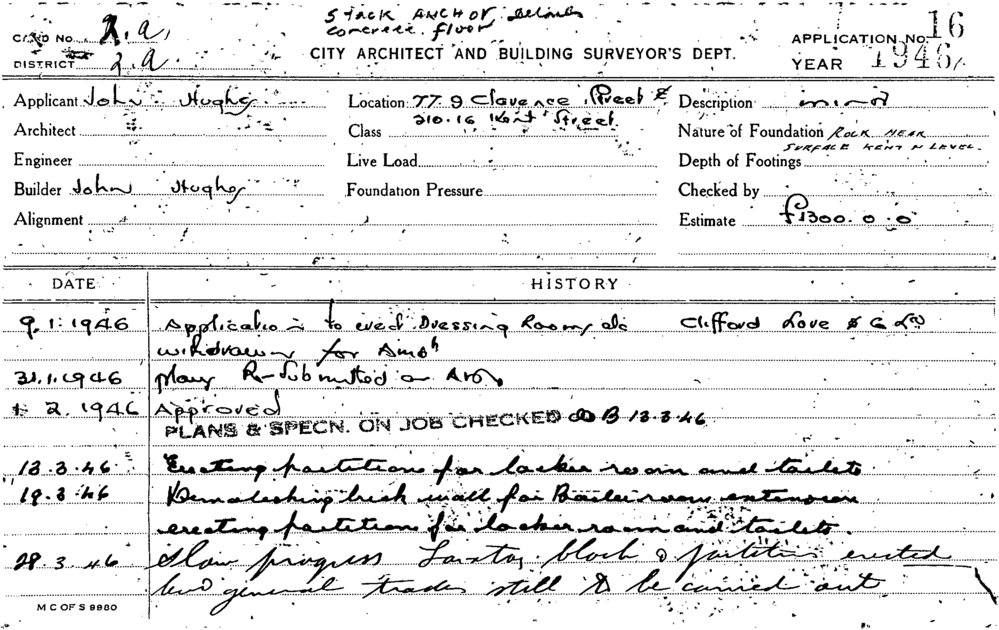 STACK ANCHOR details
concrete floor
CARD No. 2.a.
CITY ARCHITECT AND BUILDING SURVEYOR'S DEPT.
APPLICATION No. 16
DISTRICT 2.a
YEAR 1946/
Applicant John Hughes
Location 77.9 Clarence Street &
210.16 Kent Street
Description minor
Architect
Class
Nature of Foundation ROCK NEAR
SURFACE KENT N LEVEL.
Engineer
Live Load
Depth of Footings
Builder John Hughes
Foundation Pressure
Checked by
Alignment
Estimate £1300.0.0
DATE HISTORY
9.1.1946 Application to erect Dressing Rooms Clifford Love & Co Ld
withdrawn for Amdt
31.1.1946 plans Re-Submitted
1. 2. 1946 Approved
PLANS & SPECN. ON JOB CHECKED B 13.3.46
13.3.46 Erecting partitions for locker room and toilets
19.3.46 Demolishing brick wall for Boiler room extension
erecting partitions for locker room and toilets.
28.3.46 Slow progress block & partition erected
general trades still to be carried out
M C OF S 9980